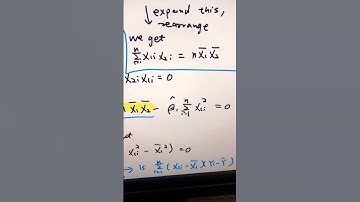 ↓ expand this,
rearrange
we get
n Σ i=1 x1i x2i = n x̄1 x̄2
x2i x1i = 0
x̄1 x̄2 - β̂1 n Σ i=1 x1i² = 0
x1i² - x̄1²) = 0
→ is n Σ i=1 (x1i - x̄1)(Yi - Ȳ)